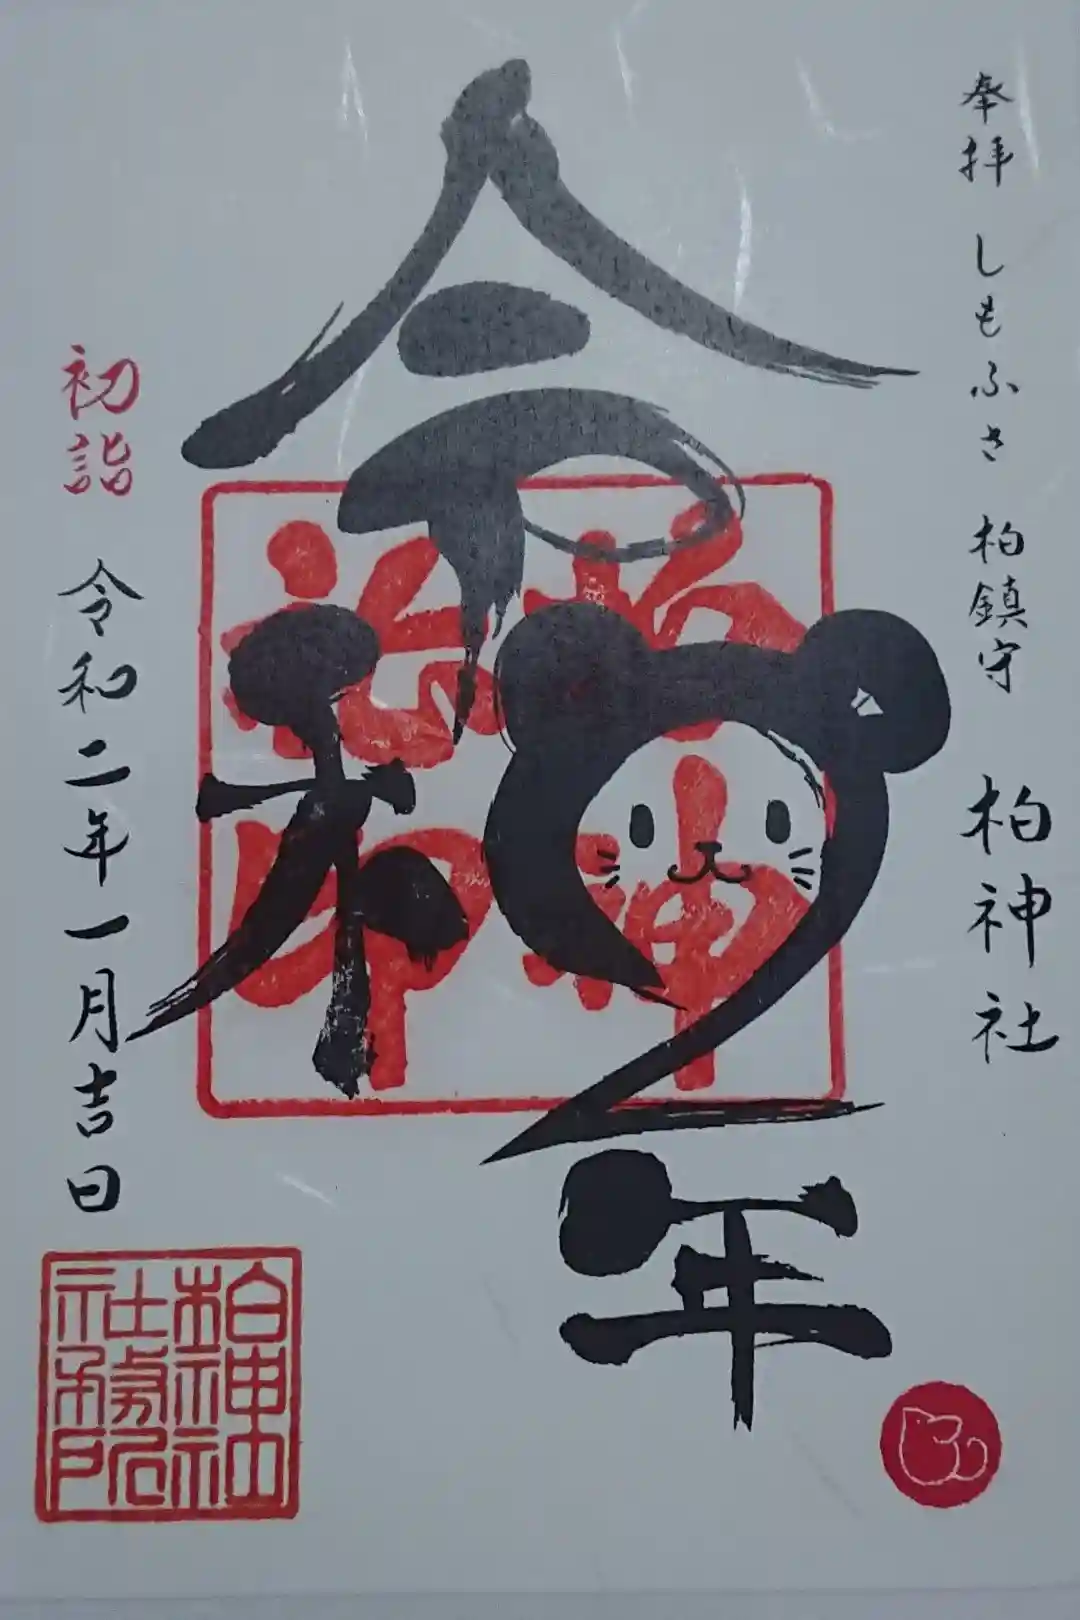 奉拝 しもふさ 柏鎮守 柏神社
令和
2年
初詣 令和二年一月吉日
柏神社
社務所